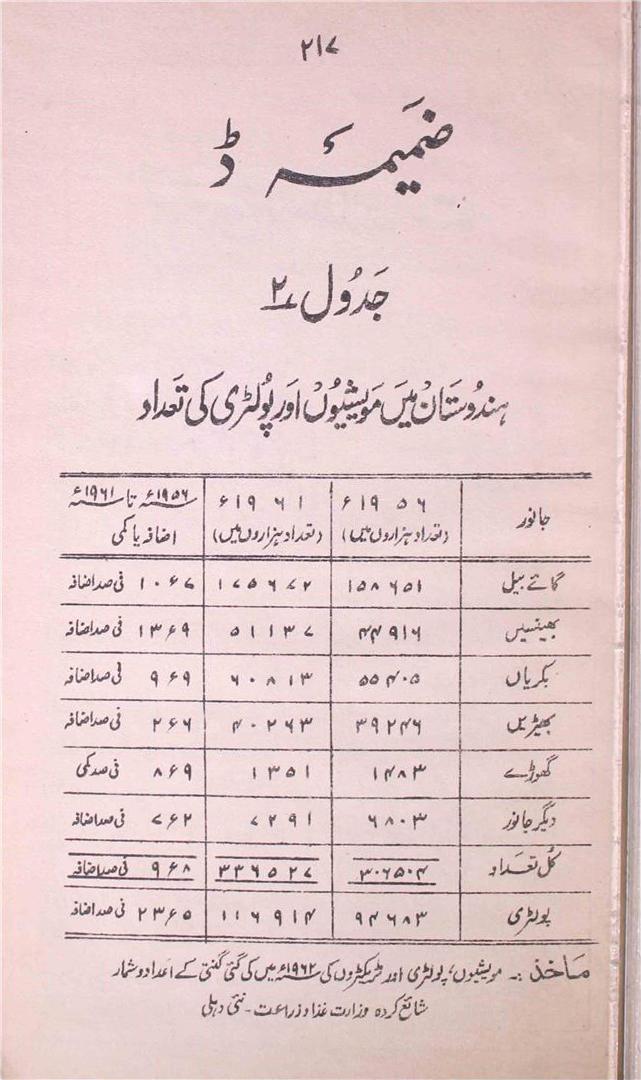 ۲۱۷
ضمیمۂ ڈ
جدول ۲
ہندوستان میں مویشیوں اور پولٹری کی تعداد
جانور | ۱۹۵۶ء (تعداد ہزاروں میں) | ۱۹۶۱ء (تعداد ہزاروں میں) | ۱۹۵۶ء تا ۱۹۶۱ء اضافہ یا کمی
گائے بیل | ۱۵۸۶۵۱ | ۱۷۵۶۷۲ | ۱۰ء۷ فی صد اضافہ
بھینسیں | ۴۴۹۱۶ | ۵۱۱۳۷ | ۱۳ء۹ فی صد اضافہ
بکریاں | ۵۵۴۰۵ | ۶۰۸۱۳ | ۹ء۹ فی صد اضافہ
بھیڑیں | ۳۹۲۴۶ | ۴۰۲۶۳ | ۲ء۶ فی صد اضافہ
گھوڑے | ۱۴۸۳ | ۱۳۵۱ | ۸ء۹ فی صد کمی
دیگر جانور | ۶۸۰۳ | ۷۲۹۱ | ۷ء۲ فی صد اضافہ
کل تعداد | ۳۰۶۵۰۴ | ۳۳۶۵۲۷ | ۹ء۸ فی صد اضافہ
پولٹری | ۹۴۶۸۳ | ۱۱۶۹۱۴ | ۲۳ء۵ فی صد اضافہ
ماخذ :۔ مویشیوں، پولٹری اور ٹریکٹروں کی ۱۹۶۲ء میں کی گئی گنتی کے اعداد و شمار
شائع کردہ وزارت غذا و زراعت ۔ نئی دہلی